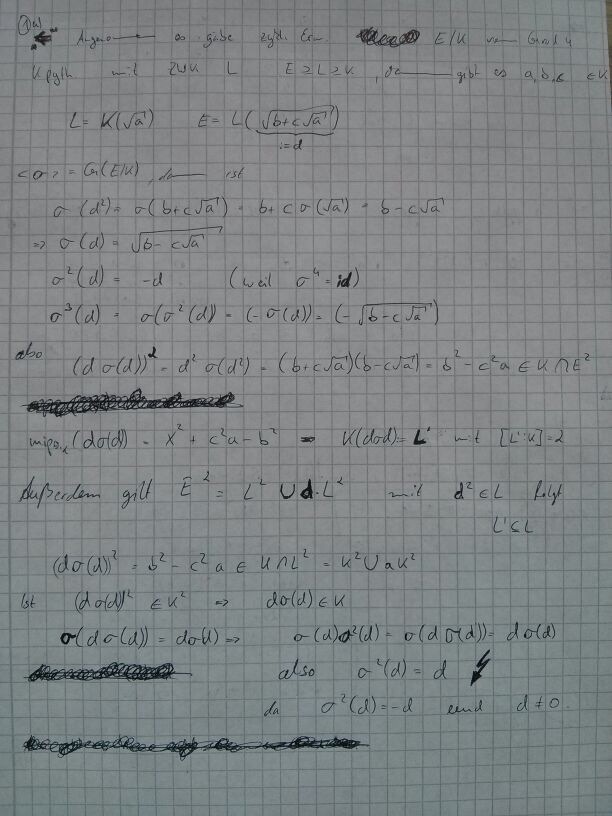 1a)
"⇐" Angeno— es gäbe zykl. Erw. E/K vom Grad 4
K pyth mit ZWK L E ≥ L ≥ K, da— gibt es a, b, c ∈ K
L = K(√a) E = L(√(b+c√a))
:= d
<σ> = G(E/K), da— ist
σ(d²) = σ(b+c√a) = b + cσ(√a) = b - c√a
⇒ σ(d) = √(b - c√a)
σ²(d) = -d (weil σ⁴ = id)
σ³(d) = σ(σ²(d)) = (-σ(d)) = (-√(b - c√a))
also (dσ(d))² = d² σ(d²) = (b+c√a)(b-c√a) = b² - c²a ∈ K ∩ E²
mipo (dσ(d)) = X² + c²a - b² K(dσd) = L' mit [L':K] = 2
Außerdem gilt E² = L² ∪ d·L² mit d² ∈ L folgt
L' ⊆ L
(dσ(d))² = b² - c²a ∈ K ∩ L² = K² ∪ aK²
Ist (dσ(d))² ∈ K² ⇒ dσ(d) ∈ K
σ(dσ(d)) = dσ(d) ⇒ σ(d)σ²(d) = σ(dσ(d)) = dσ(d)
also σ²(d) = d ↯
da σ²(d) = -d und d ≠ 0.